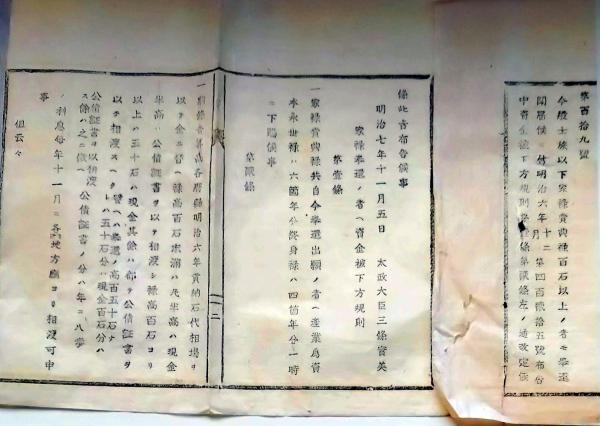 第百拾九號
今般士族以下家祿賞典祿百石以上ノ者モ奉還
聞屆候ニ付明治六年十二月第四百貳拾五號布告
中資金被下方規則第壹條第貳條左ノ通改定候
條此旨布告候事
明治七年十一月五日 太政大臣三條實美
家祿奉還ノ者ヘ資金被下方規則
第壹條
一家祿賞典祿共自今奉還出願ノ者ヘ産業爲資
本永世祿ハ六箇年分終身祿ハ四箇年分一時
ニ下賜候事
第貳條
一祿高各府縣明治六年貢納石代相場ヲ
以テ金ニ替ヘ祿高百石未滿ハ先半高ハ現金
半高ハ公債証書ヲ以テ相渡シ祿高百石ヨリ
以上ハ五十石分現金其餘ハ都テ公債証書ヲ
以テ相渡スヘク
公債証書ヲ以相渡
公債証書ノ分ハ年ニ八分
ノ利息毎年十一月ニ各地方廳ヨリ相渡可申
事
但云々
二